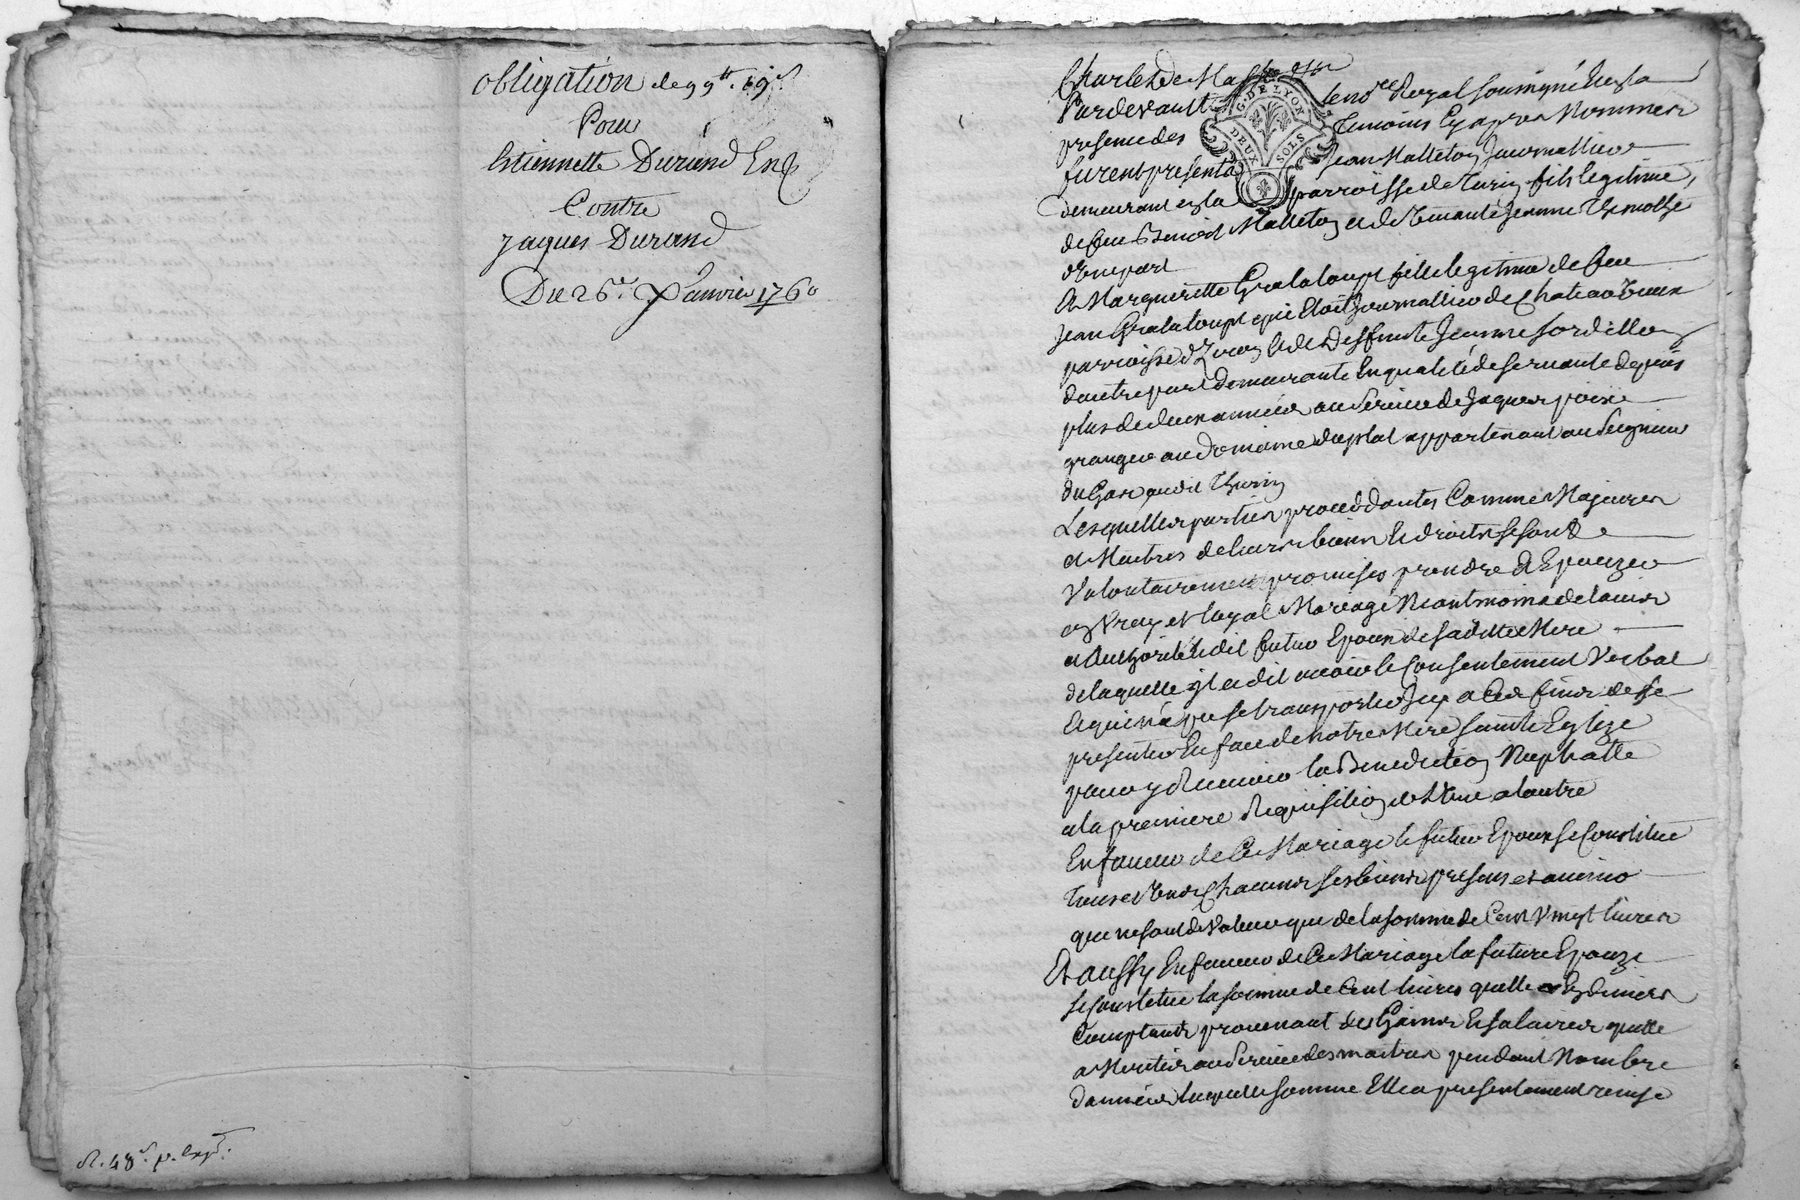 obligation de 99tt. 19s
Pour
Etiennette Durand
Contre
Jaques Durand
Du 26e. Janvier 1760
R. 48s. p. exp.
Charles de
Pardevant le nore Royal soussigné Et en la
presence des Temoins Cy apres Nommes
furent presents Jean Malleton Journallier
demeurant en la parroisse de Turin fils legitime
de feu Benoist Malleton et de vivante Jeanne
d'Une part
Et Marguerite Grataloupt fille legitime de feu
Jean Grataloupt qui Etoit Journallier de Chateauvieux
parroisse d'Yzeron Et de deffunte Jeanne
d'autre part demeurante En qualité de servante depuis
plus de deux années au service de Jaques
granger au domaine du plat appartenant au seigneur
du Gare audit Thurin
Lesquelles parties proceddantes Comme Majeures
et Maitres de leurs biens Et droits se sont
Volontairement promises prendre et Epouzer
en Vray et loyal Mariage Neantmoins de l'avis
et Authorité ledit futur Epoux de sa ditte Mere
de laquelle il a dit avoir le Consentement Verbal
Et qui n'a pu se transporter Icy a Ces fins de se
presenter En face de notre Mere sainte Eglize
pour y Recevoir la Benediction Nuptialle
a la premiere Requisition de l'Une a l'autre
En faveur de Ce Mariage le futur Epoux se Constitue
tous et Uns Chacuns ses biens presens et avenir
que ne sont de Valeur que de la somme de Cent Vingt livres
Et aussy En faveur de Ce Mariage la future Epouze
se Constitue la somme de Cent livres qu'elle a En deniers
Comptants provenant des Gains Et salaires qu'elle
a Merités au service des maitres pendant Nombre
d'années laquelle somme Elle a presentement remise
G. DE LYON
DEUX SOLS